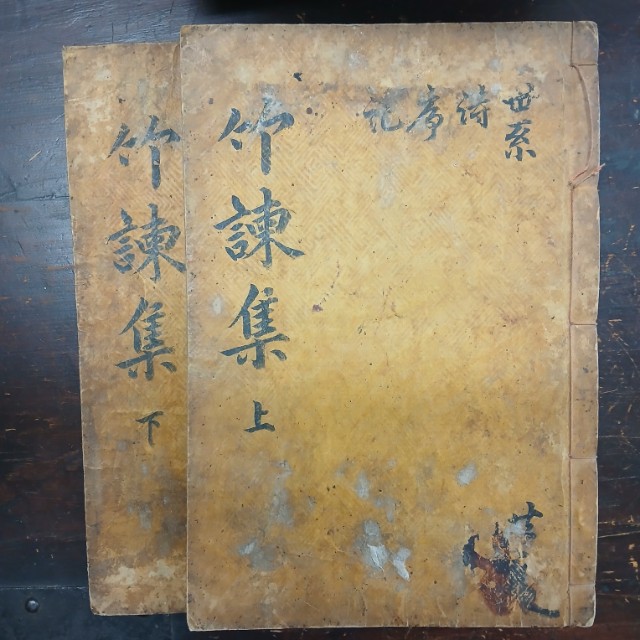 世系
詩
序
記
竹諫集 上
竹諫集 下